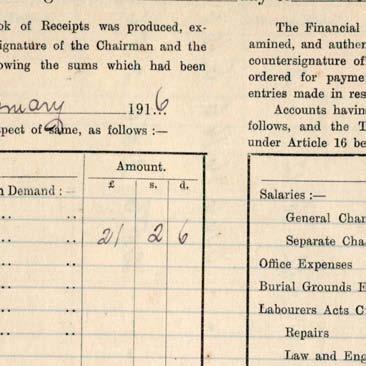 ok of Receipts was produced, ex-
ignature of the Chairman and the
owing the sums which had been
1916
spect of same, as follows :—
Amount.
£ s. d.
n Demand :—
21 2 6
The Financial
amined, and authen
countersignature of
ordered for payme
entries made in res
Accounts having
follows, and the T
under Article 16 be
Salaries :—
General Char
Separate Cha
Office Expenses
Burial Grounds E
Labourers Acts C
Repairs
Law and Eng